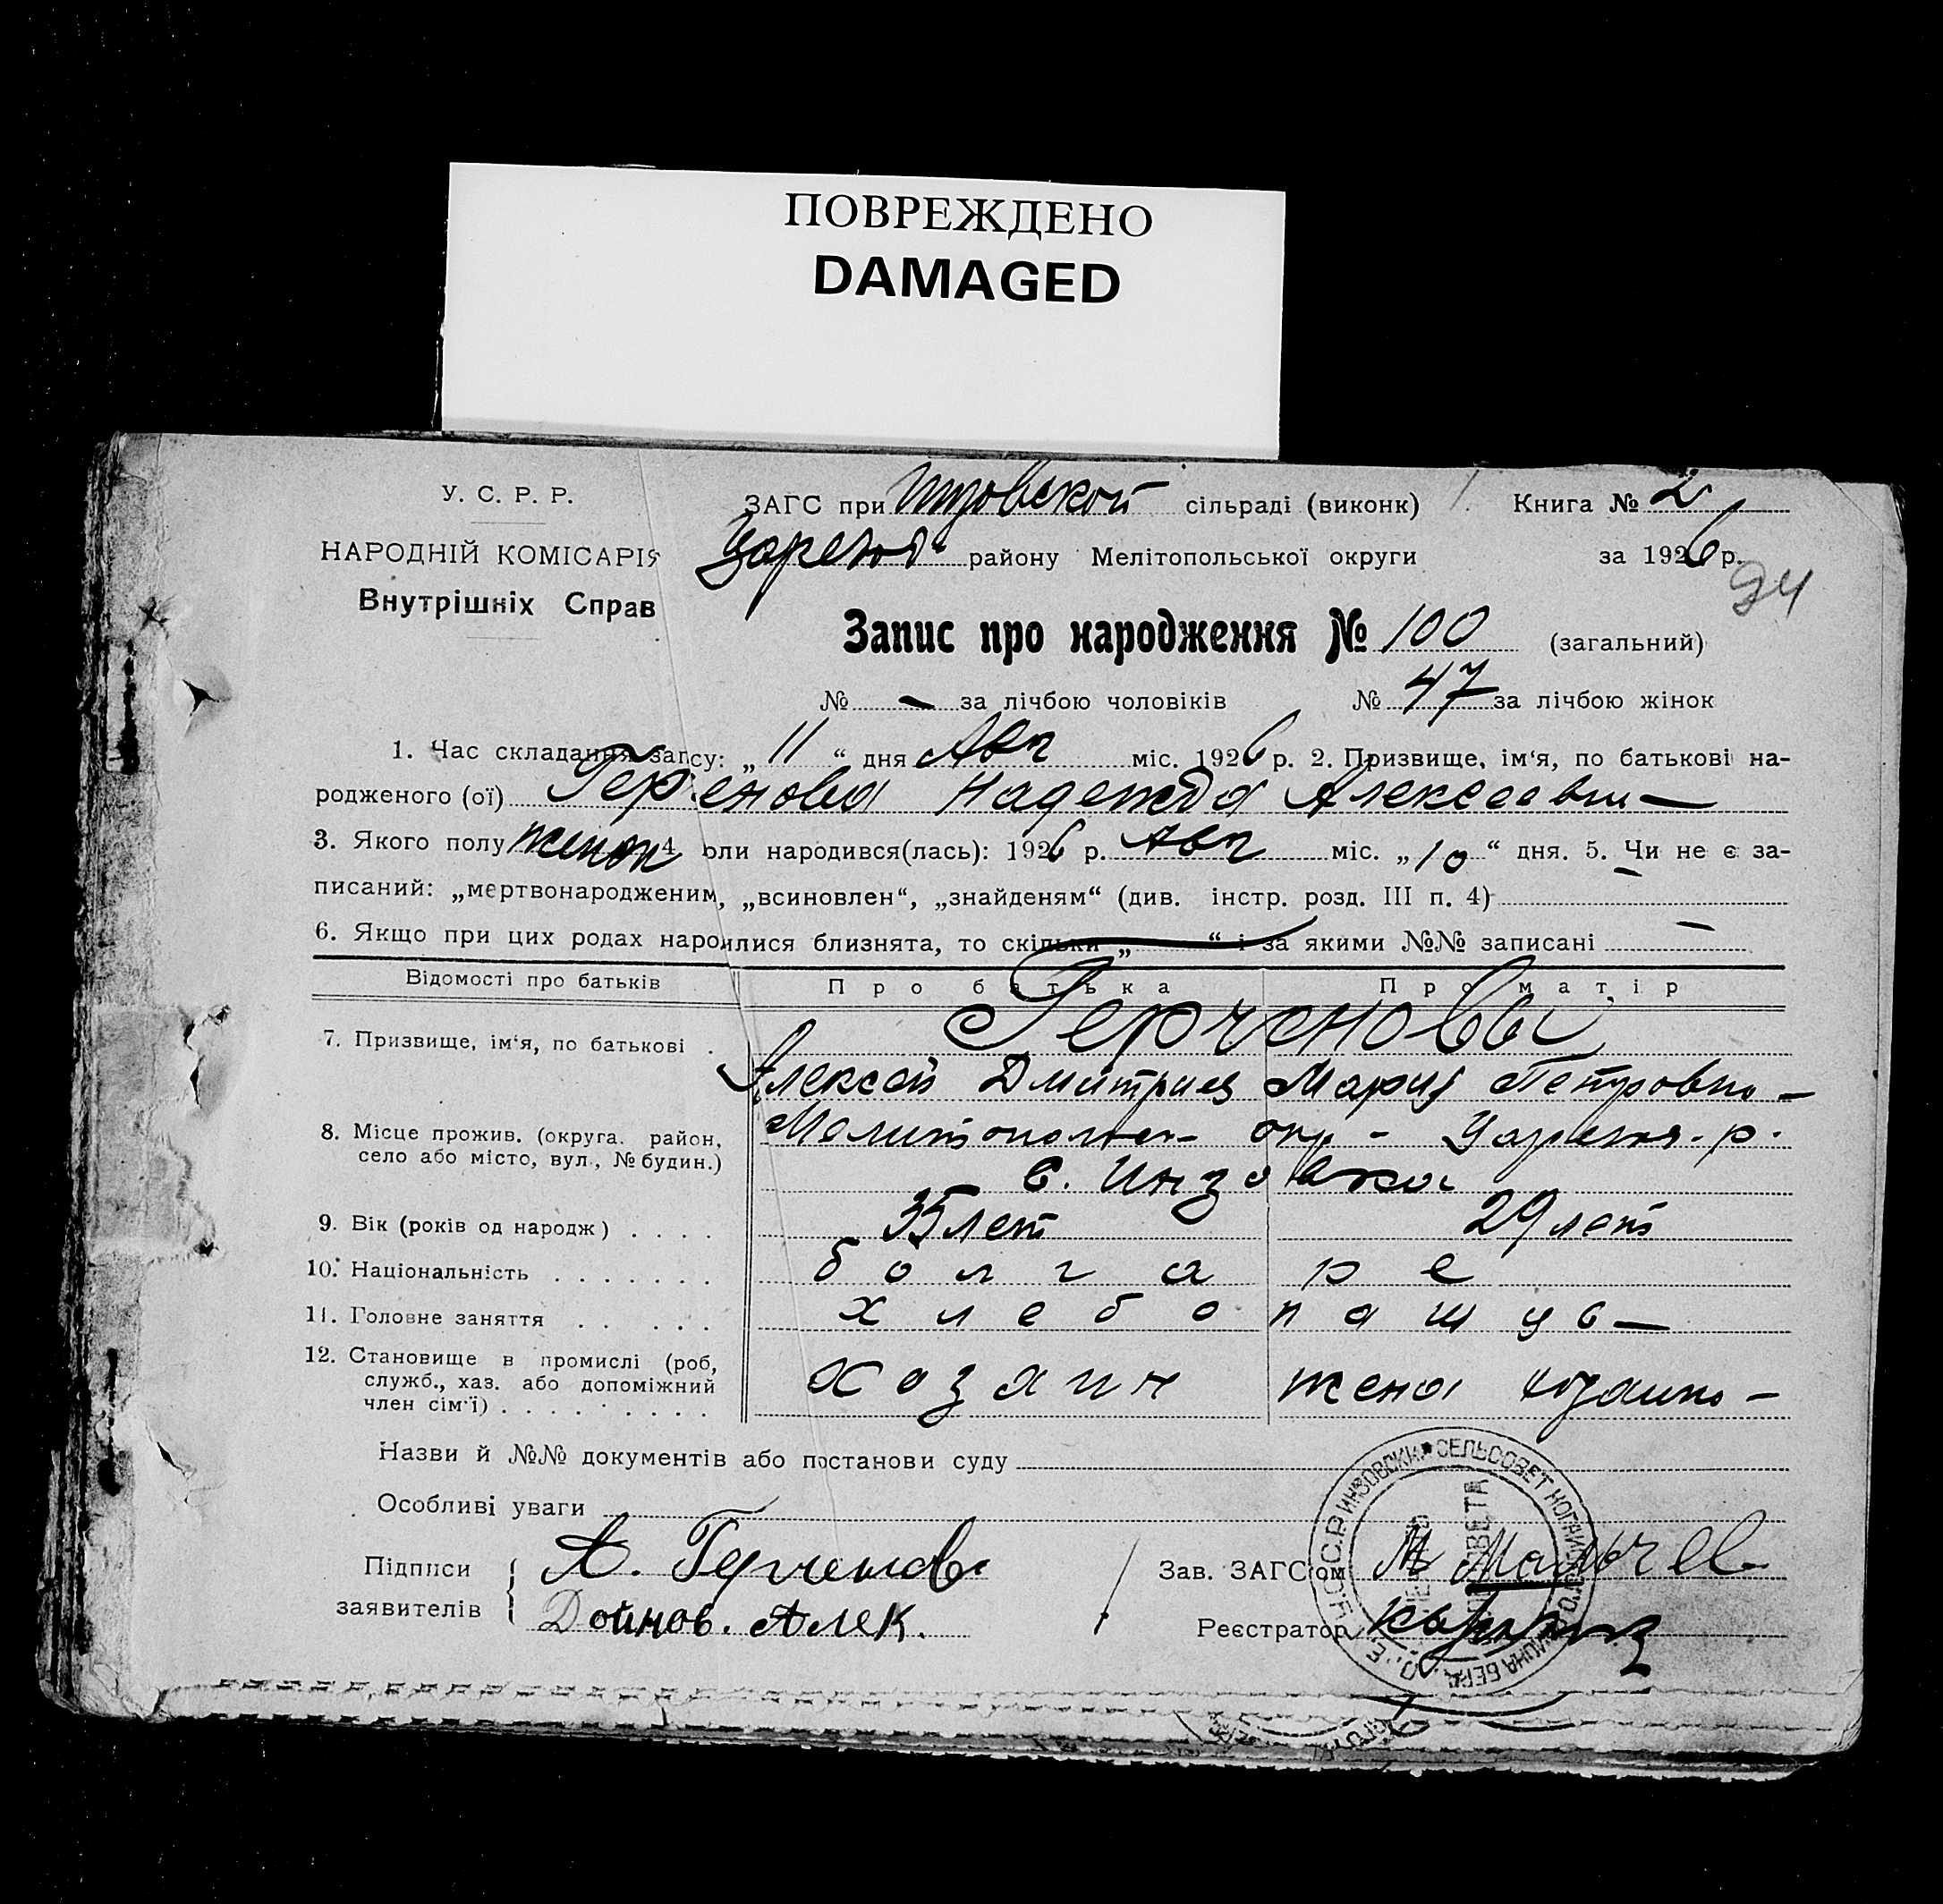 ПОВРЕЖДЕНО
DAMAGED
У. С. Р. Р.
НАРОДНІЙ КОМІСАРІЯ
Внутрішніх Справ
ЗАГС при Инзовской сільраді (виконк) Книга № 2
Царекон района Мелітопольської округи за 1926 р.
94
Запис про народження № 100 (загальний)
№ — за лічбою чоловіків № 47 за лічбою жінок
1. Час складання запсу: „ 11 “ дня Авг міс. 1926 р. 2. Призвище, ім‘я, по батькові на-
родженого (ої) Герченова Надежда Алексеевн—
3. Якого полу женск 4 оли народився(лась): 1926 р. Авг міс. „10“ дня. 5. Чи не є за-
писаний: „мертвонародженим, „всиновлен“, „знайденям“ (див. інстр. розд. III п. 4) —
6. Якщо при цих родах народилися близнята, то скільки „ “ і за якими №№ записані —
Відомості про батьків Про батька Про матір
7. Призвище, ім‘я, по батькові . Герченовы
Алексей Дмитриев Мария Петровн—
8. Місце прожив. (округа. район, село або місто, вул., № будин.) Мелитопольск- окр- р.
с. Инзовка
9. Вік (років од народж) . . . . 35 лет 29 лет
10. Національність . . . . . . . болгаре
11. Головне заняття . . . . . хлебопашцы—
12. Становище в промислі (роб, служб., хаз. або допоміжний член сім‘ї) . . . . . . . . . хозяин жена хозяин—
Назви й №№ документів або постанови суду
Особливі уваги
Підписи заявителів А. Герченов.
Дойнов. Алек.
Зав. ЗАГС‘ом М
Реєстратор
У.С.С.Р. ИНЗОВСКИЙ СЕЛЬСОВЕТ НОГАЙСКОГО